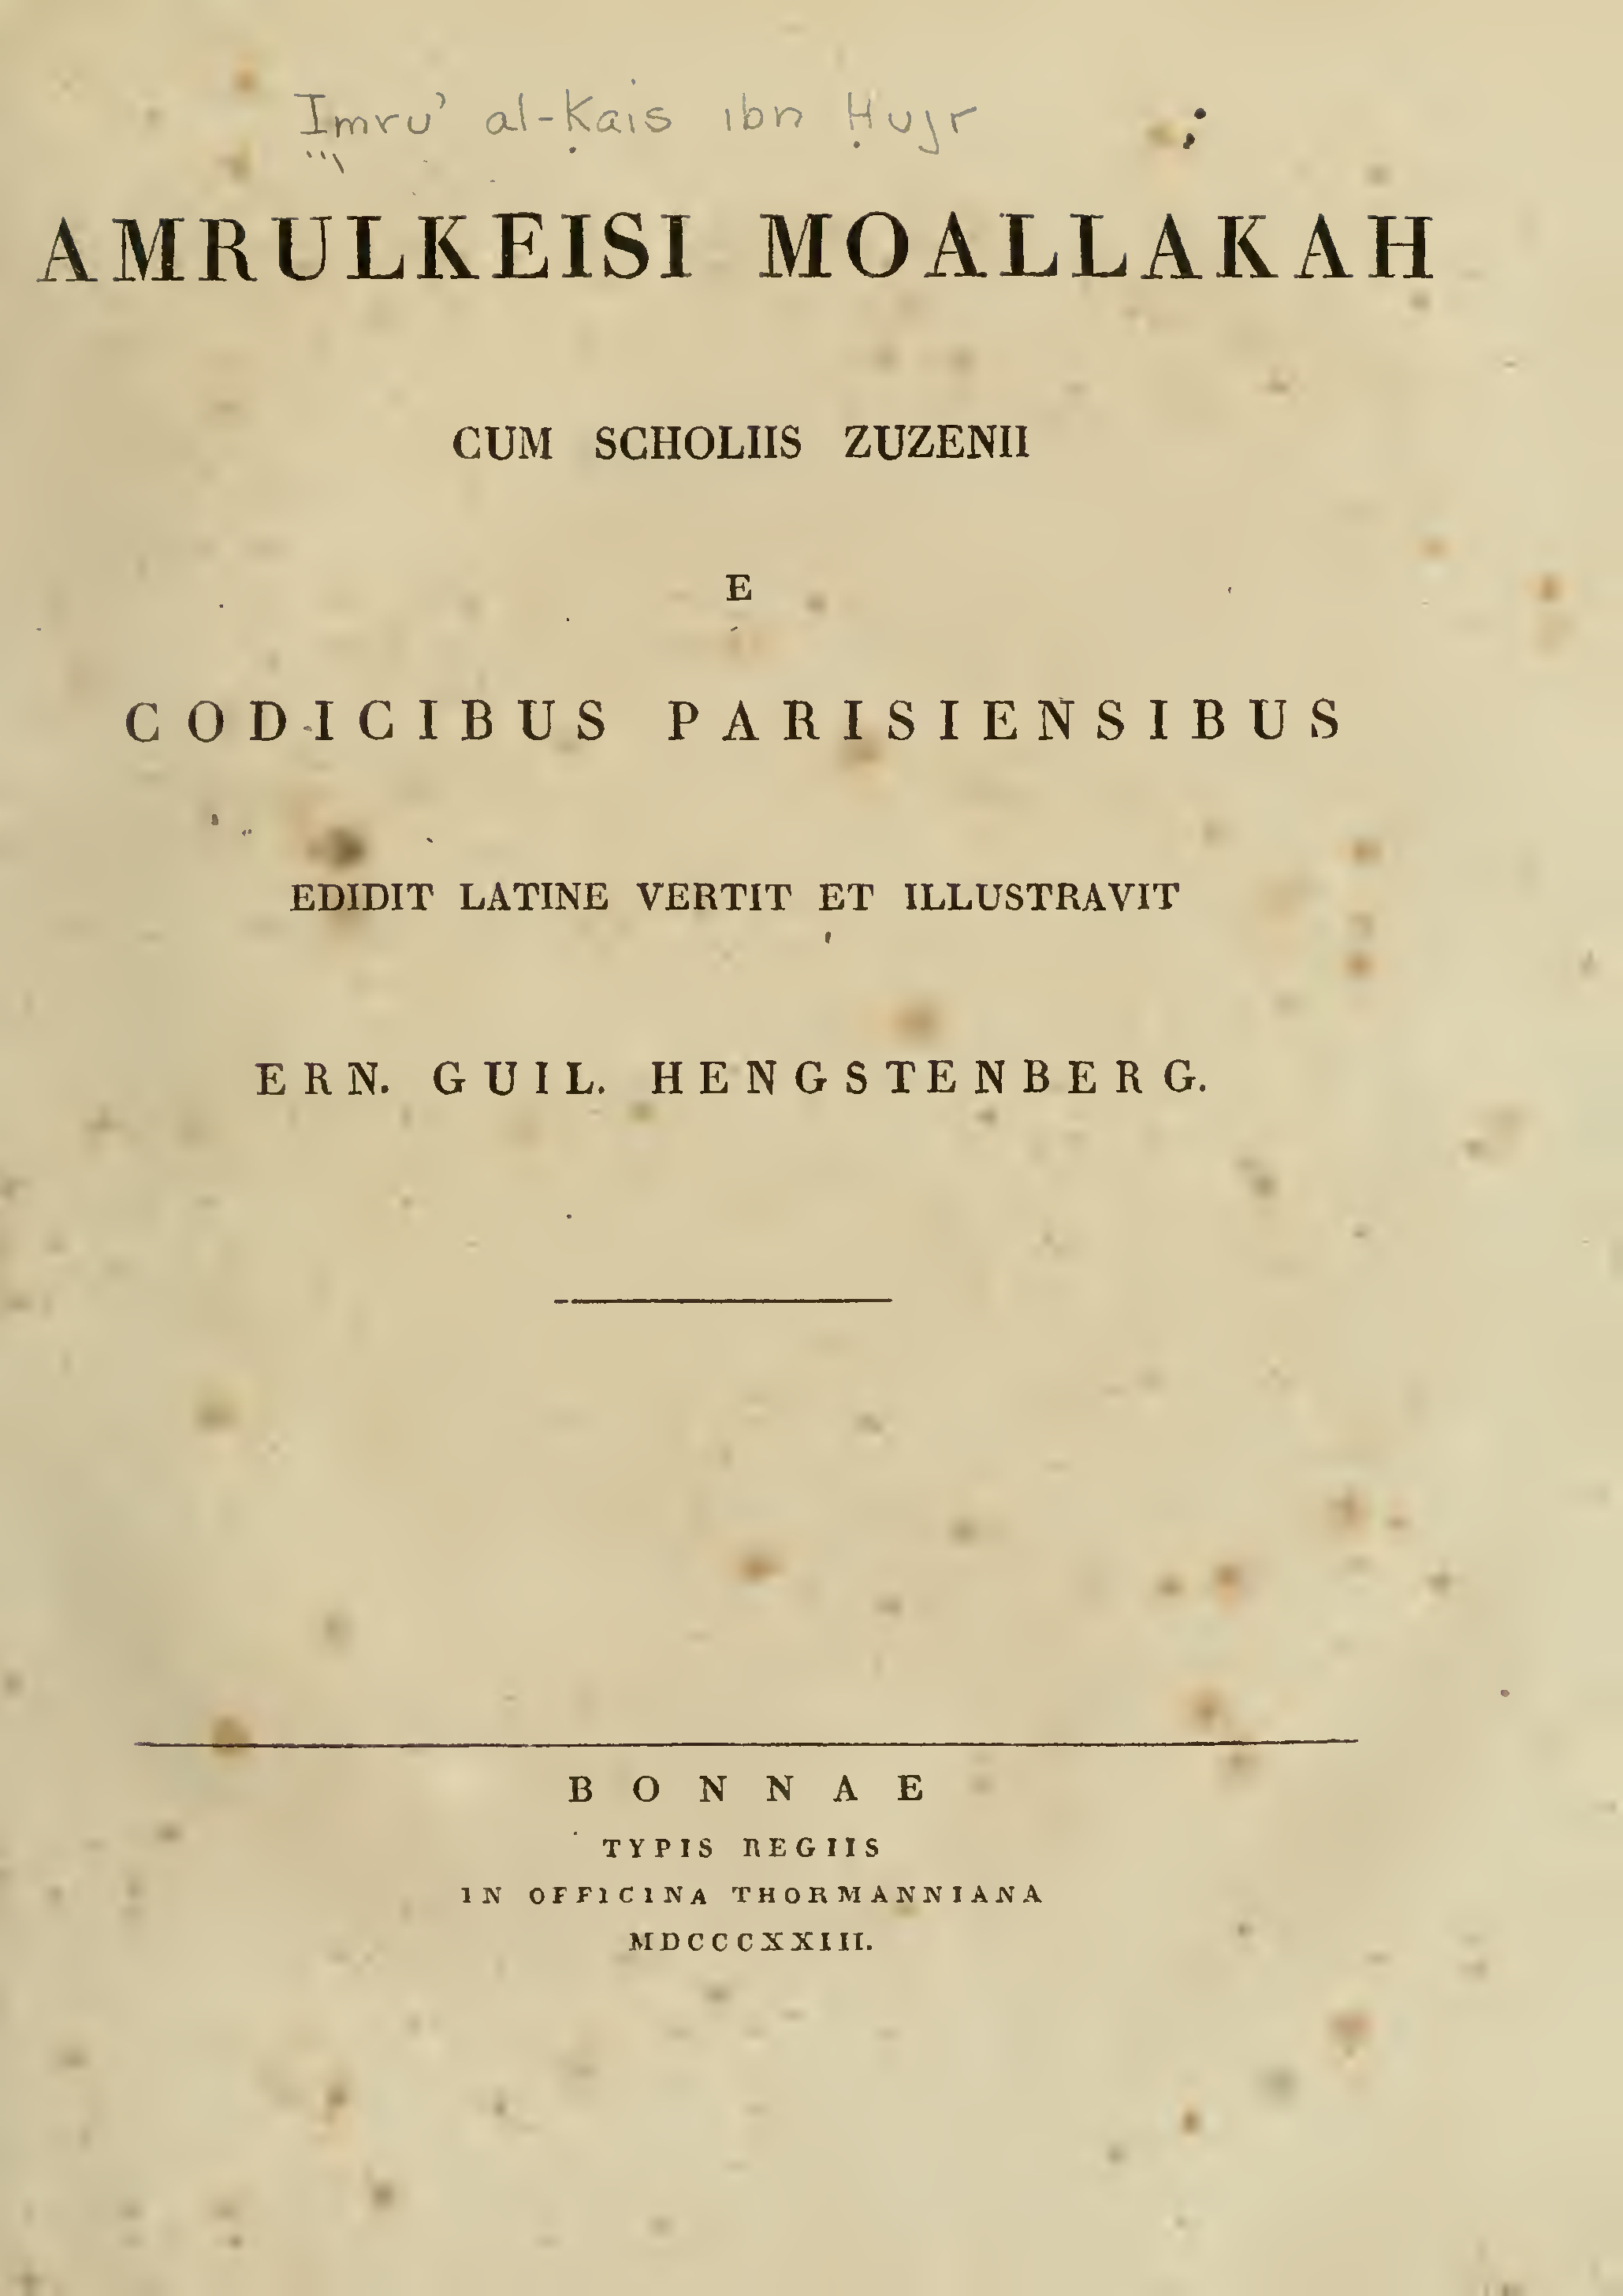 Imru' al-Ḳais ibn Ḥujr
AMRULKEISI MOALLAKAH
CUM SCHOLIIS ZUZENII
E
CODICIBUS PARISIENSIBUS
EDIDIT LATINE VERTIT ET ILLUSTRAVIT
ERN. GUIL. HENGSTENBERG.
BONNAE
TYPIS REGIIS
IN OFFICINA THORMANNIANA
MDCCCXXIII.